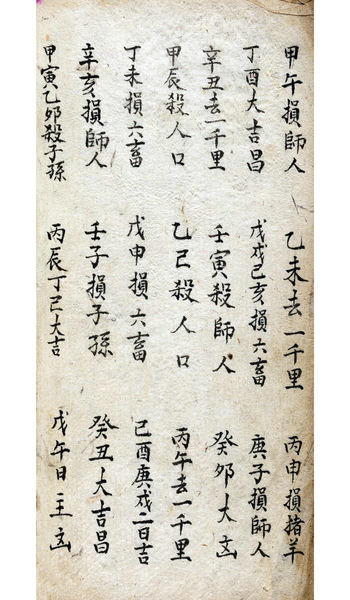 甲午損師人　乙未去一千里　丙申損猪羊
丁酉大吉昌　戊戌己亥損六畜　庚子損師人
辛丑去一千里　壬寅殺師人　癸卯大凶
甲辰殺人口　乙巳殺人口　丙午去一千里
丁未損六畜　戊申損六畜　己酉庚戌二日吉
辛亥損師人　壬子損子孫　癸丑大吉昌
甲寅乙卯殺子孫　丙辰丁巳大吉　戊午日主凶